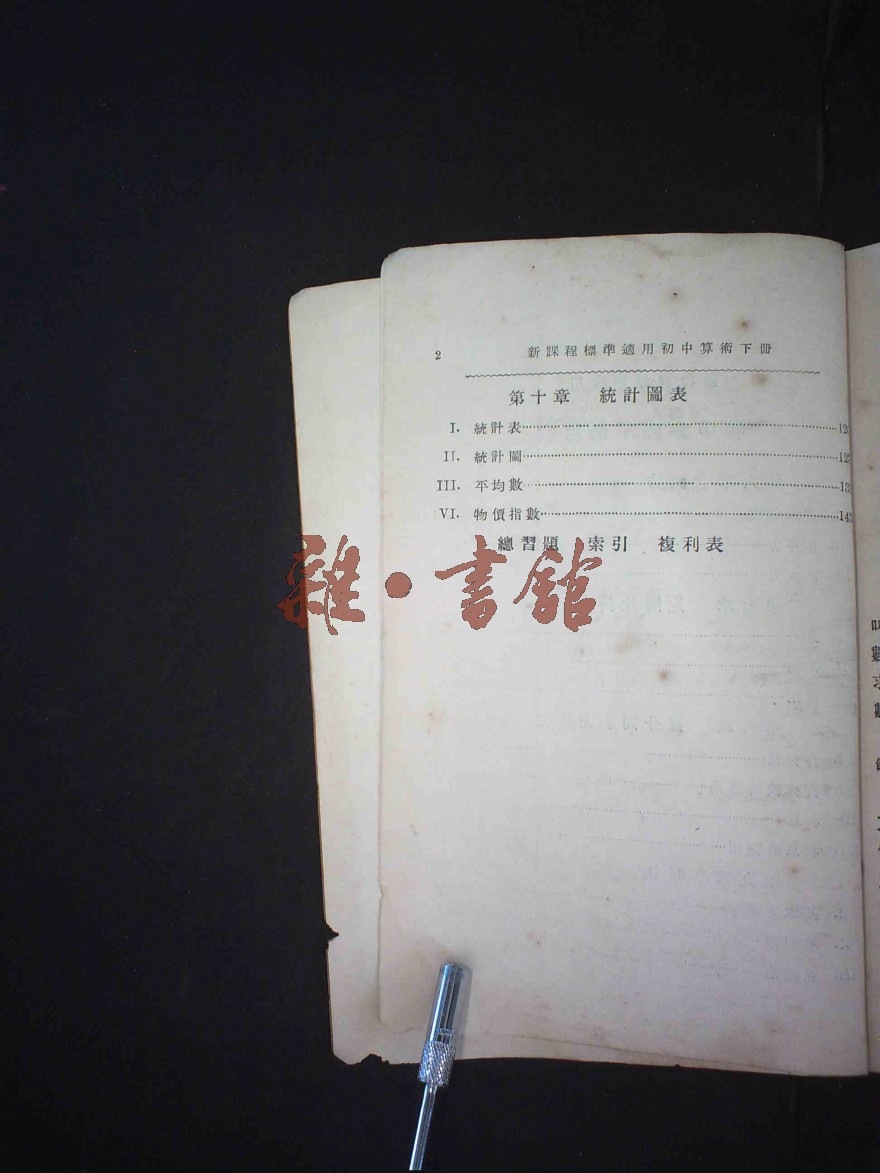 2 新課程標準適用初中算術下册
第十章 統計圖表
I. 統計表
II. 統計圖
III. 平均數
VI. 物價指數
總習題 索引 複利表
雜·書館